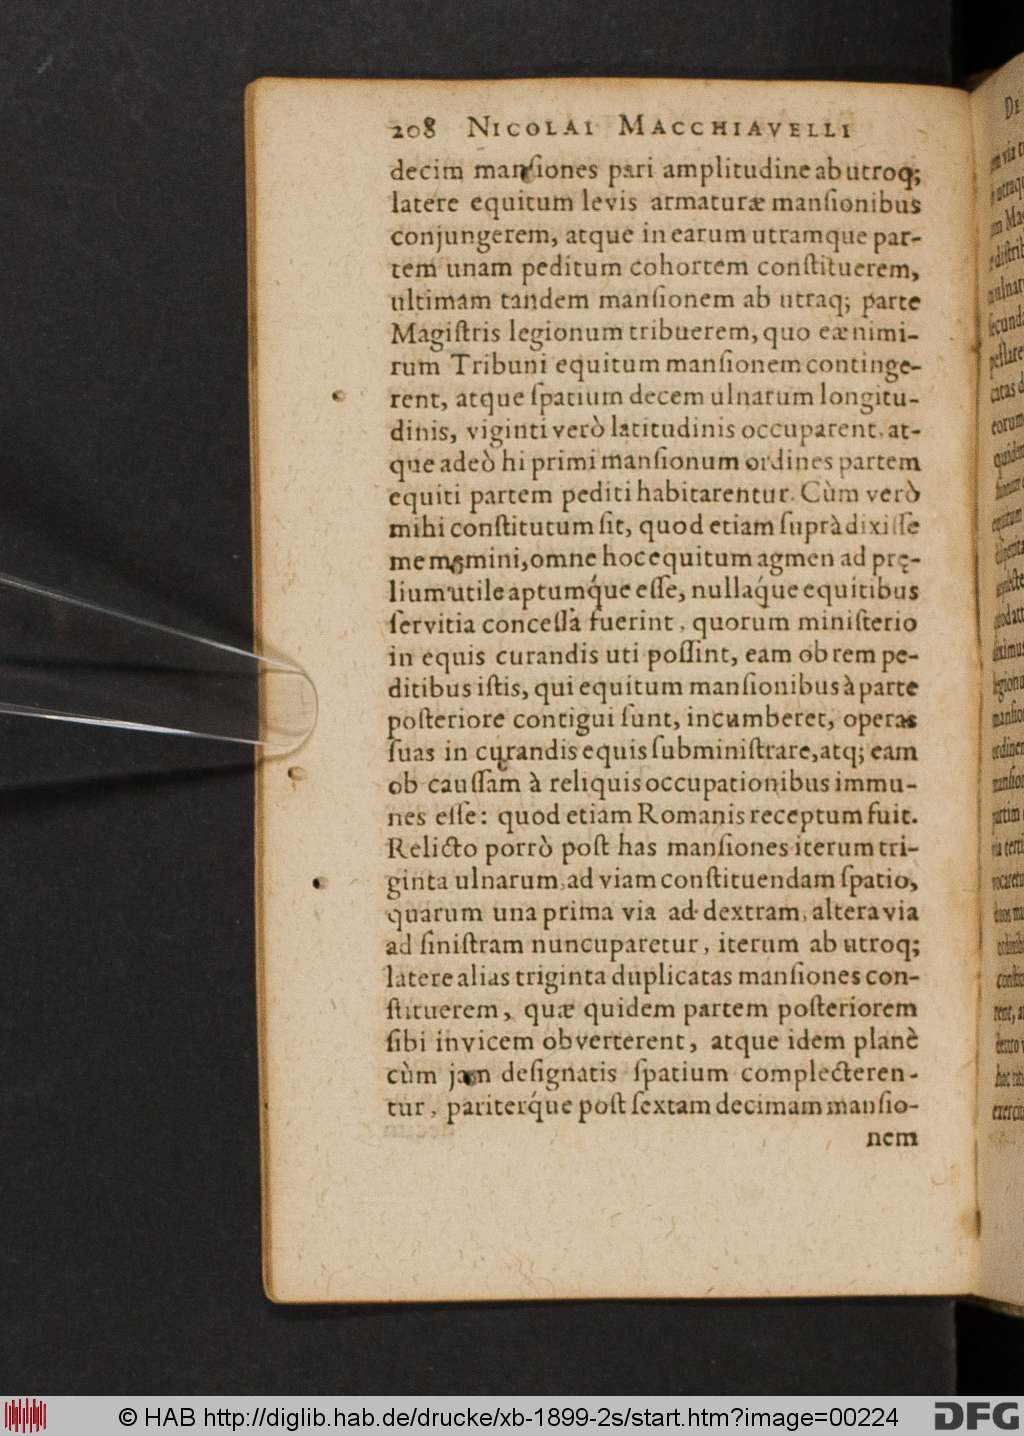 208 NICOLAI MACCHIAVELLI
decim manſiones pari amplitudine ab utroq;
latere equitum levis armaturæ manſionibus
conjungerem, atque in earum utramque par-
tem unam peditum cohortem conſtituerem,
ultimam tandem manſionem ab utraq; parte
Magiſtris legionum tribuerem, quo eæ nimi-
rum Tribuni equitum manſionem continge-
rent, atque ſpatium decem ulnarum longitu-
dinis, viginti verò latitudinis occuparent, at-
que adeò hi primi manſionum ordines partem
equiti partem pediti habitarentur. Cùm verò
mihi conſtitutum ſit, quod etiam ſuprà dixiſſe
me memini, omne hoc equitum agmen ad prę-
lium utile aptumq́ue eſſe, nullaq́ue equitibus
ſervitia conceſſa fuerint, quorum miniſterio
in equis curandis uti poſſint, eam ob rem pe-
ditibus iſtis, qui equitum manſionibus à parte
poſteriore contigui ſunt, incumberet, operas
ſuas in curandis equis ſubminiſtrare, atq; eam
ob cauſſam à reliquis occupationibus immu-
nes eſſe: quod etiam Romanis receptum fuit.
Relicto porrò poſt has manſiones iterum tri-
ginta ulnarum ad viam conſtituendam ſpatio,
quarum una prima via ad dextram, altera via
ad ſiniſtram nuncuparetur, iterum ab utroq;
latere alias triginta duplicatas manſiones con-
ſtituerem, quæ quidem partem poſteriorem
ſibi invicem obverterent, atque idem planè
cùm jam deſignatis ſpatium complecteren-
tur, pariterq́ue poſt ſextam decimam manſio-
nem
© HAB http://diglib.hab.de/drucke/xb-1899-2s/start.htm?image=00224
DFG